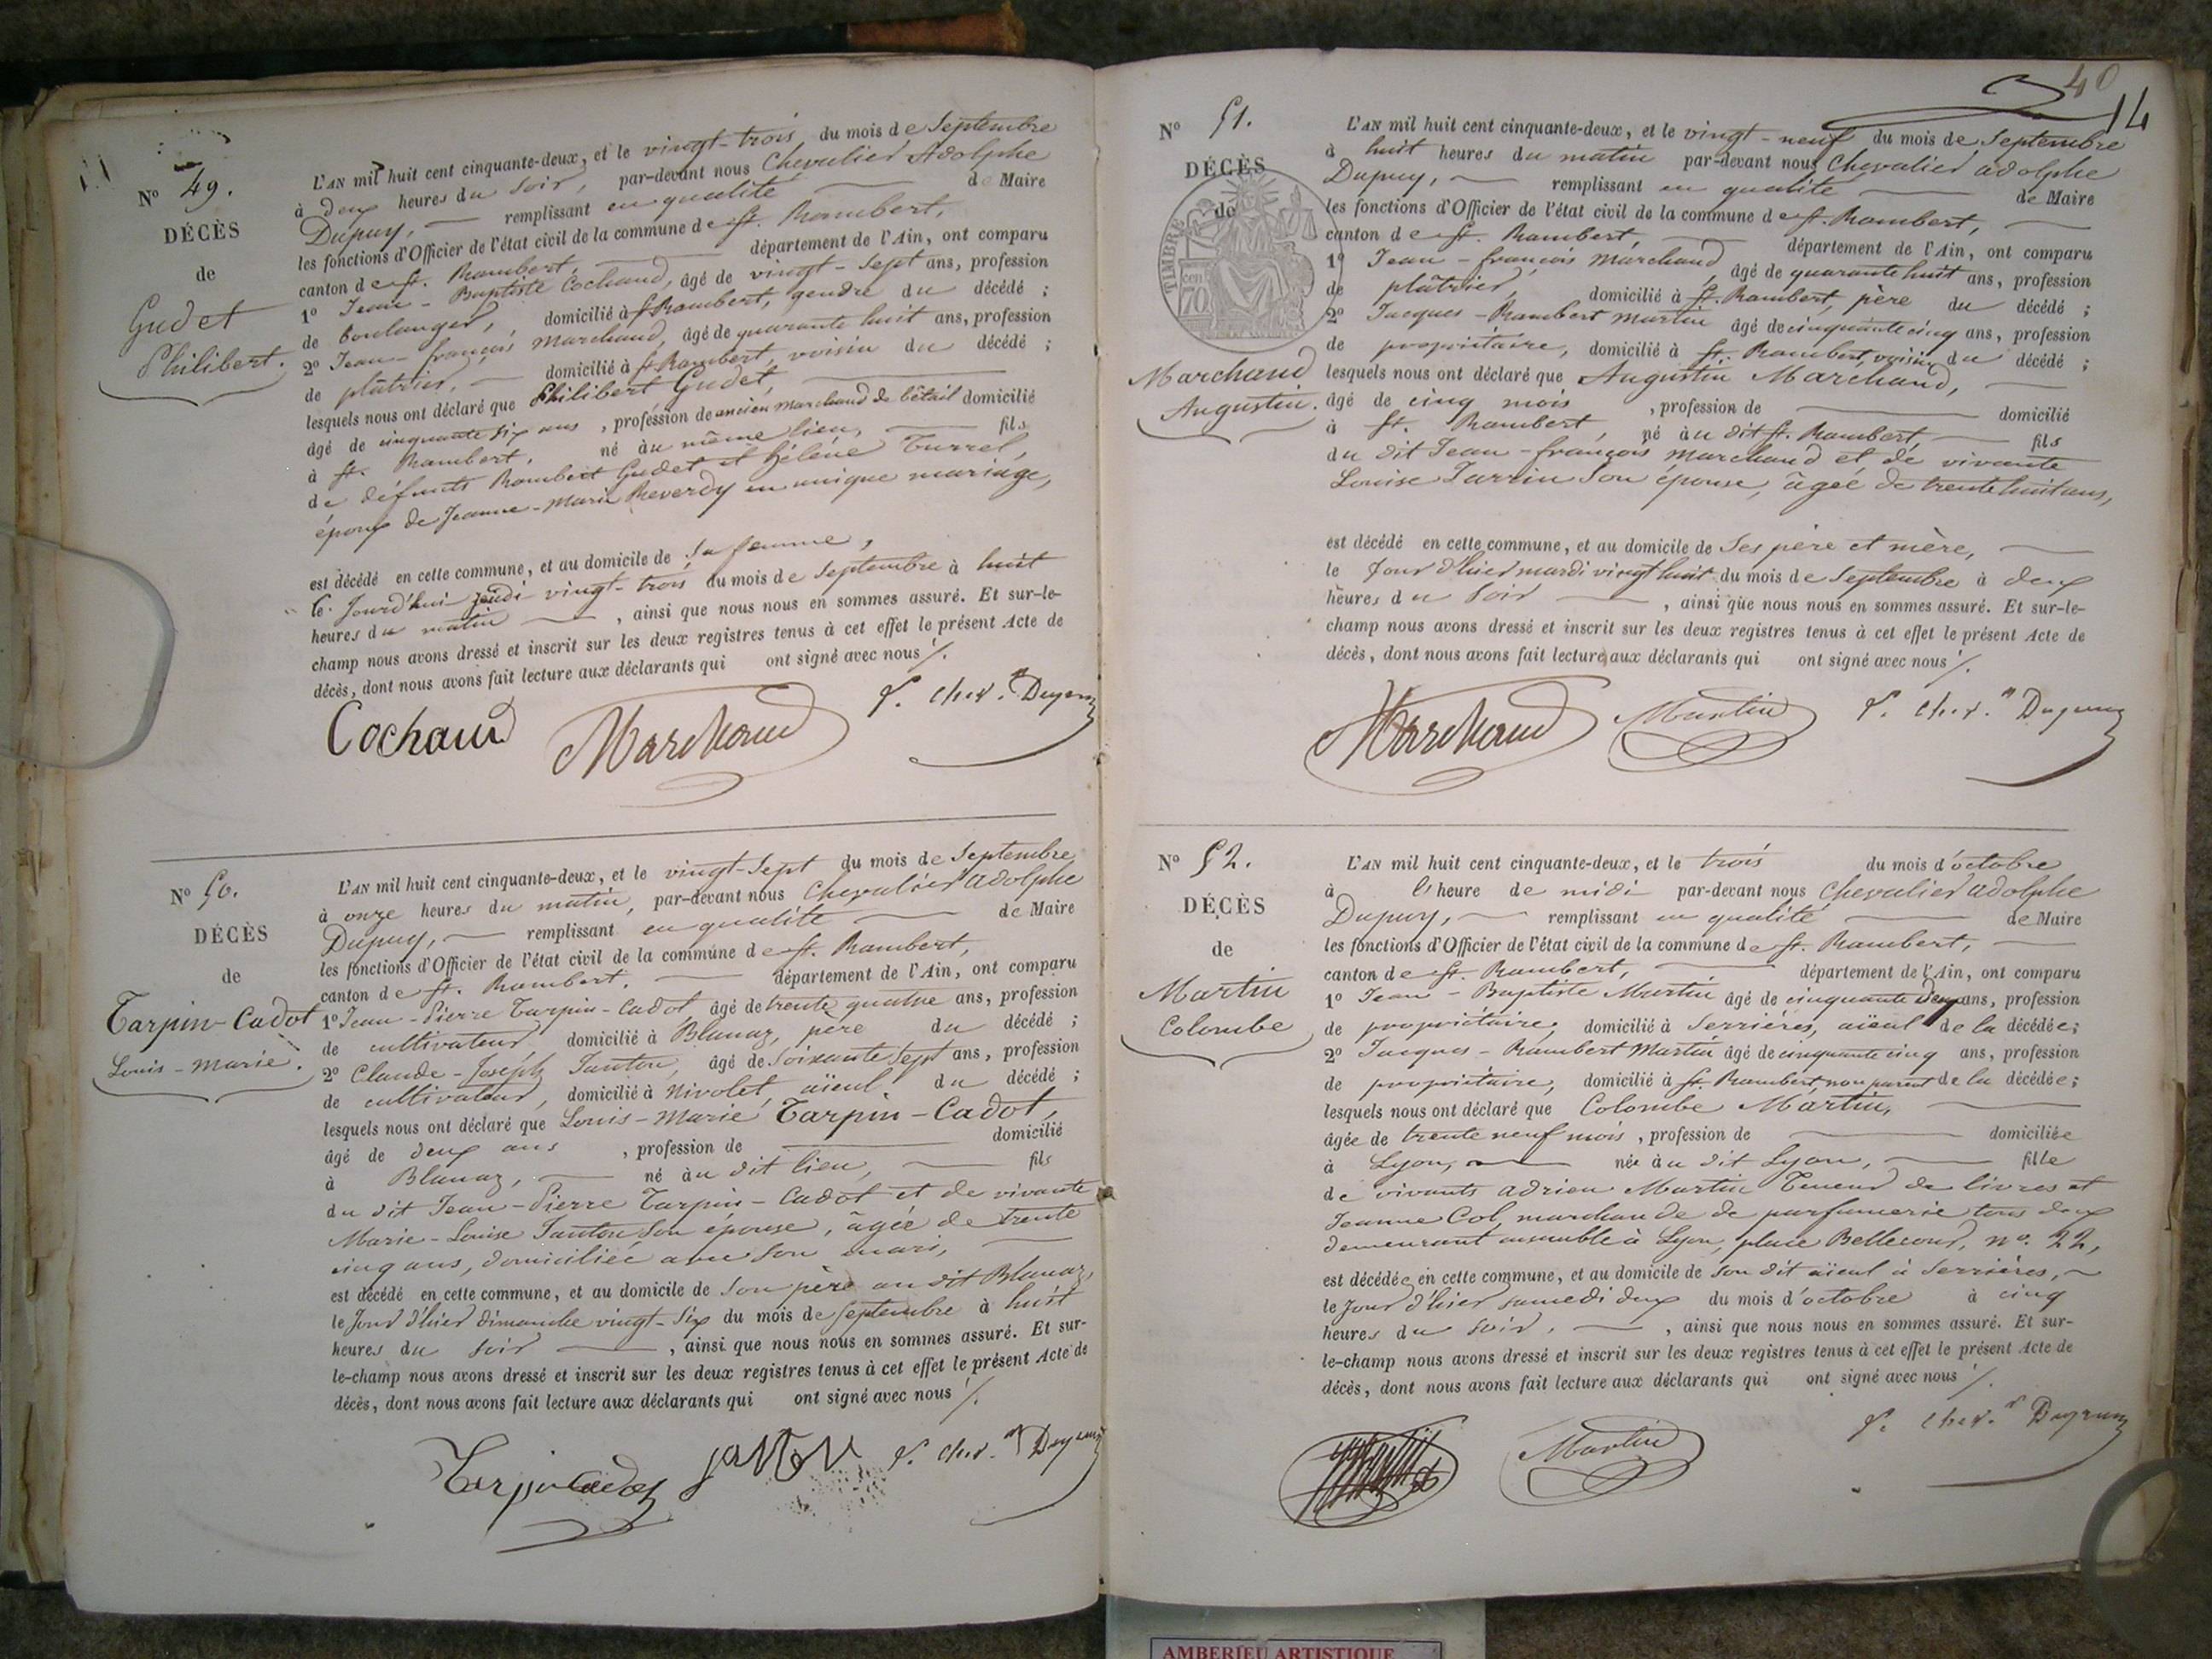 Nº 49.
DÉCÈS
de
Gudet
Philibert.
L'AN mil huit cent cinquante-deux, et le vingt-trois du mois de Septembre
à deux heures du soir, par-devant nous Chevalier Adolphe
Dupuy, remplissant en qualité de Maire
les fonctions d'Officier de l'état civil de la commune de St. Rambert,
canton de St. Rambert, département de l'Ain, ont comparu
1º Jean-Baptiste Cochaud, âgé de vingt-sept ans, profession
de boulanger, domicilié à St Rambert, gendre du décédé ;
2º Jean-françois Marchand, âgé de quarante huit ans, profession
de plâtrier, domicilié à St Rambert, voisin du décédé ;
lesquels nous ont déclaré que Philibert Gudet,
âgé de cinquante six ans, profession de ancien marchand de bétail domicilié
à St. Rambert, né au même lieu, fils
de défunts Rambert Gudet et hélène Turrel,
époux de Jeanne-Marie Reverdy en unique mariage,
est décédé en cette commune, et au domicile de sa femme,
le Jourd'hui jeudi vingt-trois du mois de Septembre à huit
heures du matin, ainsi que nous nous en sommes assuré. Et sur-le-
champ nous avons dressé et inscrit sur les deux registres tenus à cet effet le présent Acte de
décès, dont nous avons fait lecture aux déclarants qui ont signé avec nous ./.
Cochaud Marchand Cher. Dupuy
Nº 50.
DÉCÈS
de
Tarpin-Cadot
Louis-Marie.
L'AN mil huit cent cinquante-deux, et le vingt-sept du mois de Septembre
à onze heures du matin, par-devant nous Chevalier Adolphe
Dupuy, remplissant en qualité de Maire
les fonctions d'Officier de l'état civil de la commune de St. Rambert,
canton de St. Rambert, département de l'Ain, ont comparu
1º Jean-Pierre Tarpin-Cadot, âgé de trente quatre ans, profession
de cultivateur domicilié à Blanaz, père du décédé ;
2º Claude-Joseph Janton, âgé de soixante sept ans, profession
de cultivateur, domicilié à Nivolet, aïeul du décédé ;
lesquels nous ont déclaré que Louis-Marie Tarpin-Cadot,
âgé de deux ans, profession de domicilié
à Blanaz, né au dit lieu, fils
du dit Jean-Pierre Tarpin-Cadot et de vivante
Marie-Louise Janton son épouse, âgée de trente
cinq ans, domiciliée avec son mari,
est décédé en cette commune, et au domicile de son père au dit Blanaz,
le Jour d'hier dimanche vingt-six du mois de Septembre à huit
heures du soir, ainsi que nous nous en sommes assuré. Et sur-
le-champ nous avons dressé et inscrit sur les deux registres tenus à cet effet le présent Acte de
décès, dont nous avons fait lecture aux déclarants qui ont signé avec nous ./.
Tarpin Cadot janton Cher. Dupuy
40
14
Nº 51.
DÉCÈS
de
TIMBRE
70 cen
Marchand
Augustin.
L'AN mil huit cent cinquante-deux, et le vingt-neuf du mois de Septembre
à huit heures du matin par-devant nous Chevalier Adolphe
Dupuy, remplissant en qualité de Maire
les fonctions d'Officier de l'état civil de la commune de St. Rambert,
canton de St. Rambert, département de l'Ain, ont comparu
1º Jean-françois Marchand, âgé de quarante huit ans, profession
de plâtrier, domicilié à St. Rambert, père du décédé ;
2º Jacques-Rambert Martin âgé de cinquante cinq ans, profession
de propriétaire, domicilié à St. Rambert, voisin du décédé ;
lesquels nous ont déclaré que Augustin Marchand,
âgé de cinq mois, profession de domicilié
à St. Rambert, né au dit St. Rambert, fils
du dit Jean-françois Marchand et de vivante
Louise Jarrin son épouse, âgée de trente huit ans,
est décédé en cette commune, et au domicile de ses père et mère,
le Jour d'hier mardi vingt huit du mois de Septembre à deux
heures du soir, ainsi que nous nous en sommes assuré. Et sur-le-
champ nous avons dressé et inscrit sur les deux registres tenus à cet effet le présent Acte de
décès, dont nous avons fait lecture aux déclarants qui ont signé avec nous ./.
Marchand Martin Cher. Dupuy
Nº 52.
DÉCÈS
de
Martin
Colombe
L'AN mil huit cent cinquante-deux, et le trois du mois d'octobre
à l'heure de midi par-devant nous Chevalier Adolphe
Dupuy, remplissant en qualité de Maire
les fonctions d'Officier de l'état civil de la commune de St. Rambert,
canton de St. Rambert, département de l'Ain, ont comparu
1º Jean-Baptiste Martin âgé de cinquante deux ans, profession
de propriétaire, domicilié à Serrières, aïeul de la décédée ;
2º Jacques-Rambert Martin âgé de cinquante cinq ans, profession
de propriétaire, domicilié à St. Rambert, non parent de la décédée ;
lesquels nous ont déclaré que Colombe Martin,
âgée de trente neuf mois, profession de domiciliée
à Lyon, née au dit Lyon, fille
de vivants Adrien Martin Teneur de livres et
Jeanne Col, marchande de parfumerie tous deux
demeurant ensemble à Lyon, place Bellecour, nº. 22,
est décédée en cette commune, et au domicile de son dit aïeul à Serrières,
le Jour d'hier samedi deux du mois d'octobre à cinq
heures du soir, ainsi que nous nous en sommes assuré. Et sur-
le-champ nous avons dressé et inscrit sur les deux registres tenus à cet effet le présent Acte de
décès, dont nous avons fait lecture aux déclarants qui ont signé avec nous ./.
Martin Cher. Dupuy
AMBERIEU ARTISTIQUE